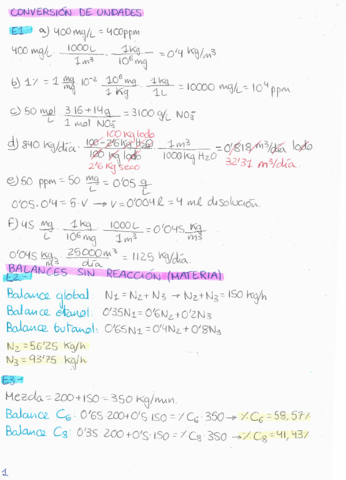 CONVERSIÓN DE UNDADES
E1 a) 400 mg/L = 400ppm
400 mg/L · 1000L / 1m³ · 1kg / 10⁶ mg = 0'4 kg/m³
b) 1% = 1 mg/mg 10⁻² · 10⁶ mg / 1 kg · 1 kg / 1L = 10000 mg/L = 10⁴ ppm
c) 50 mol/L · 3·16+14g / 1 mol NO₃⁻ = 3100 g/L NO₃⁻
100 kg lodo
d) 840 kg/día · 100-2'6 kg H₂O / 100 kg lodo · 1m³ / 1000 kg H₂O = 0'818 m³/día lodo
2'6 kg seco
32'31 m³/día
e) 50 ppm = 50 mg/L = 0'05 g/L
0'05·0'4 = 5·V → V = 0'004 L = 4 ml disolución.
f) 45 mg/L · 1 kg / 10⁶ mg · 1000 L / 1 m³ = 0'045 kg/m³
0'045 kg/m³ · 25000 m³/día = 1125 kg/día.
BALANCES SIN REACCIÓN (MATERIA)
E2-
Balance global: N₁ = N₂ + N₃ → N₂ + N₃ = 150 kg/h
Balance etanol: 0'35N₁ = 0'6N₂ + 0'2N₃
Balance butanol: 0'65N₁ = 0'4N₂ + 0'8N₃
N₂ = 56'25 kg/h
N₃ = 93'75 kg/h
E3-
Mezcla = 200 + 150 = 350 kg/min.
Balance C₆: 0'65·200 + 0'5·150 = %C₆·350 → %C₆ = 58,57%
Balance C₈: 0'35·200 + 0'5·150 = %C₈·350 → %C₈ = 41,43%
1